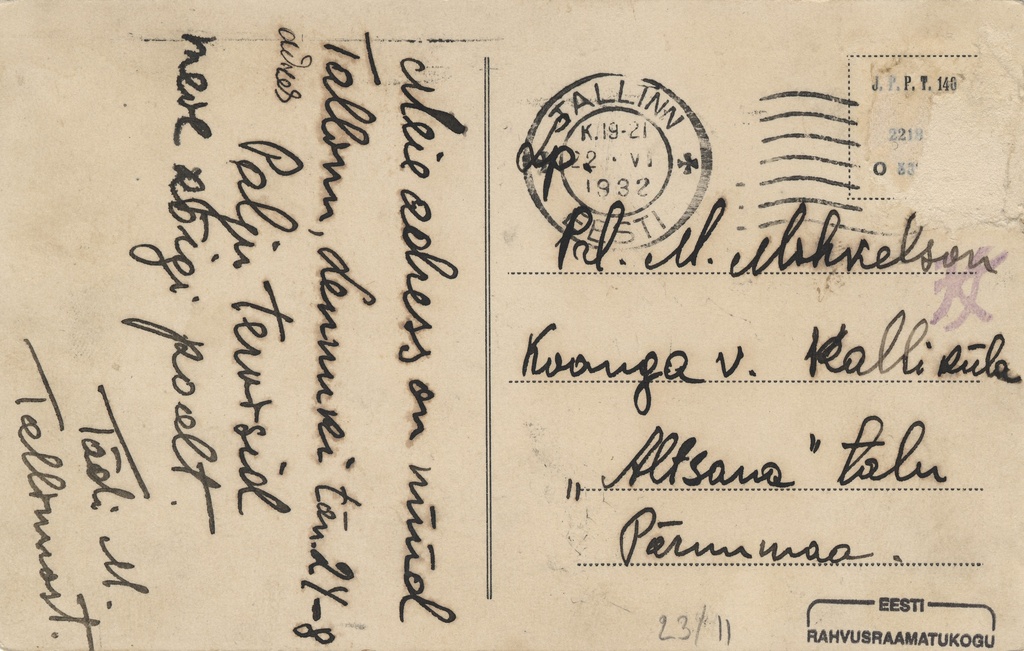 Meie adress on nüüd
Tallinn, Lennuki tän. 24-8
Palju tervisid
meie kõigi poolt.
Tädi M.
Tallinnast.
TALLINN
K.19-21
22 · VI
1932
EESTI
J. P. P. T. 140
2218
O
Prl. M. Mihkelson
Koonga v. Kalli küla
"Altsaua" talu
Pärnumaa.
23/11
EESTI
RAHVUSRAAMATUKOGU